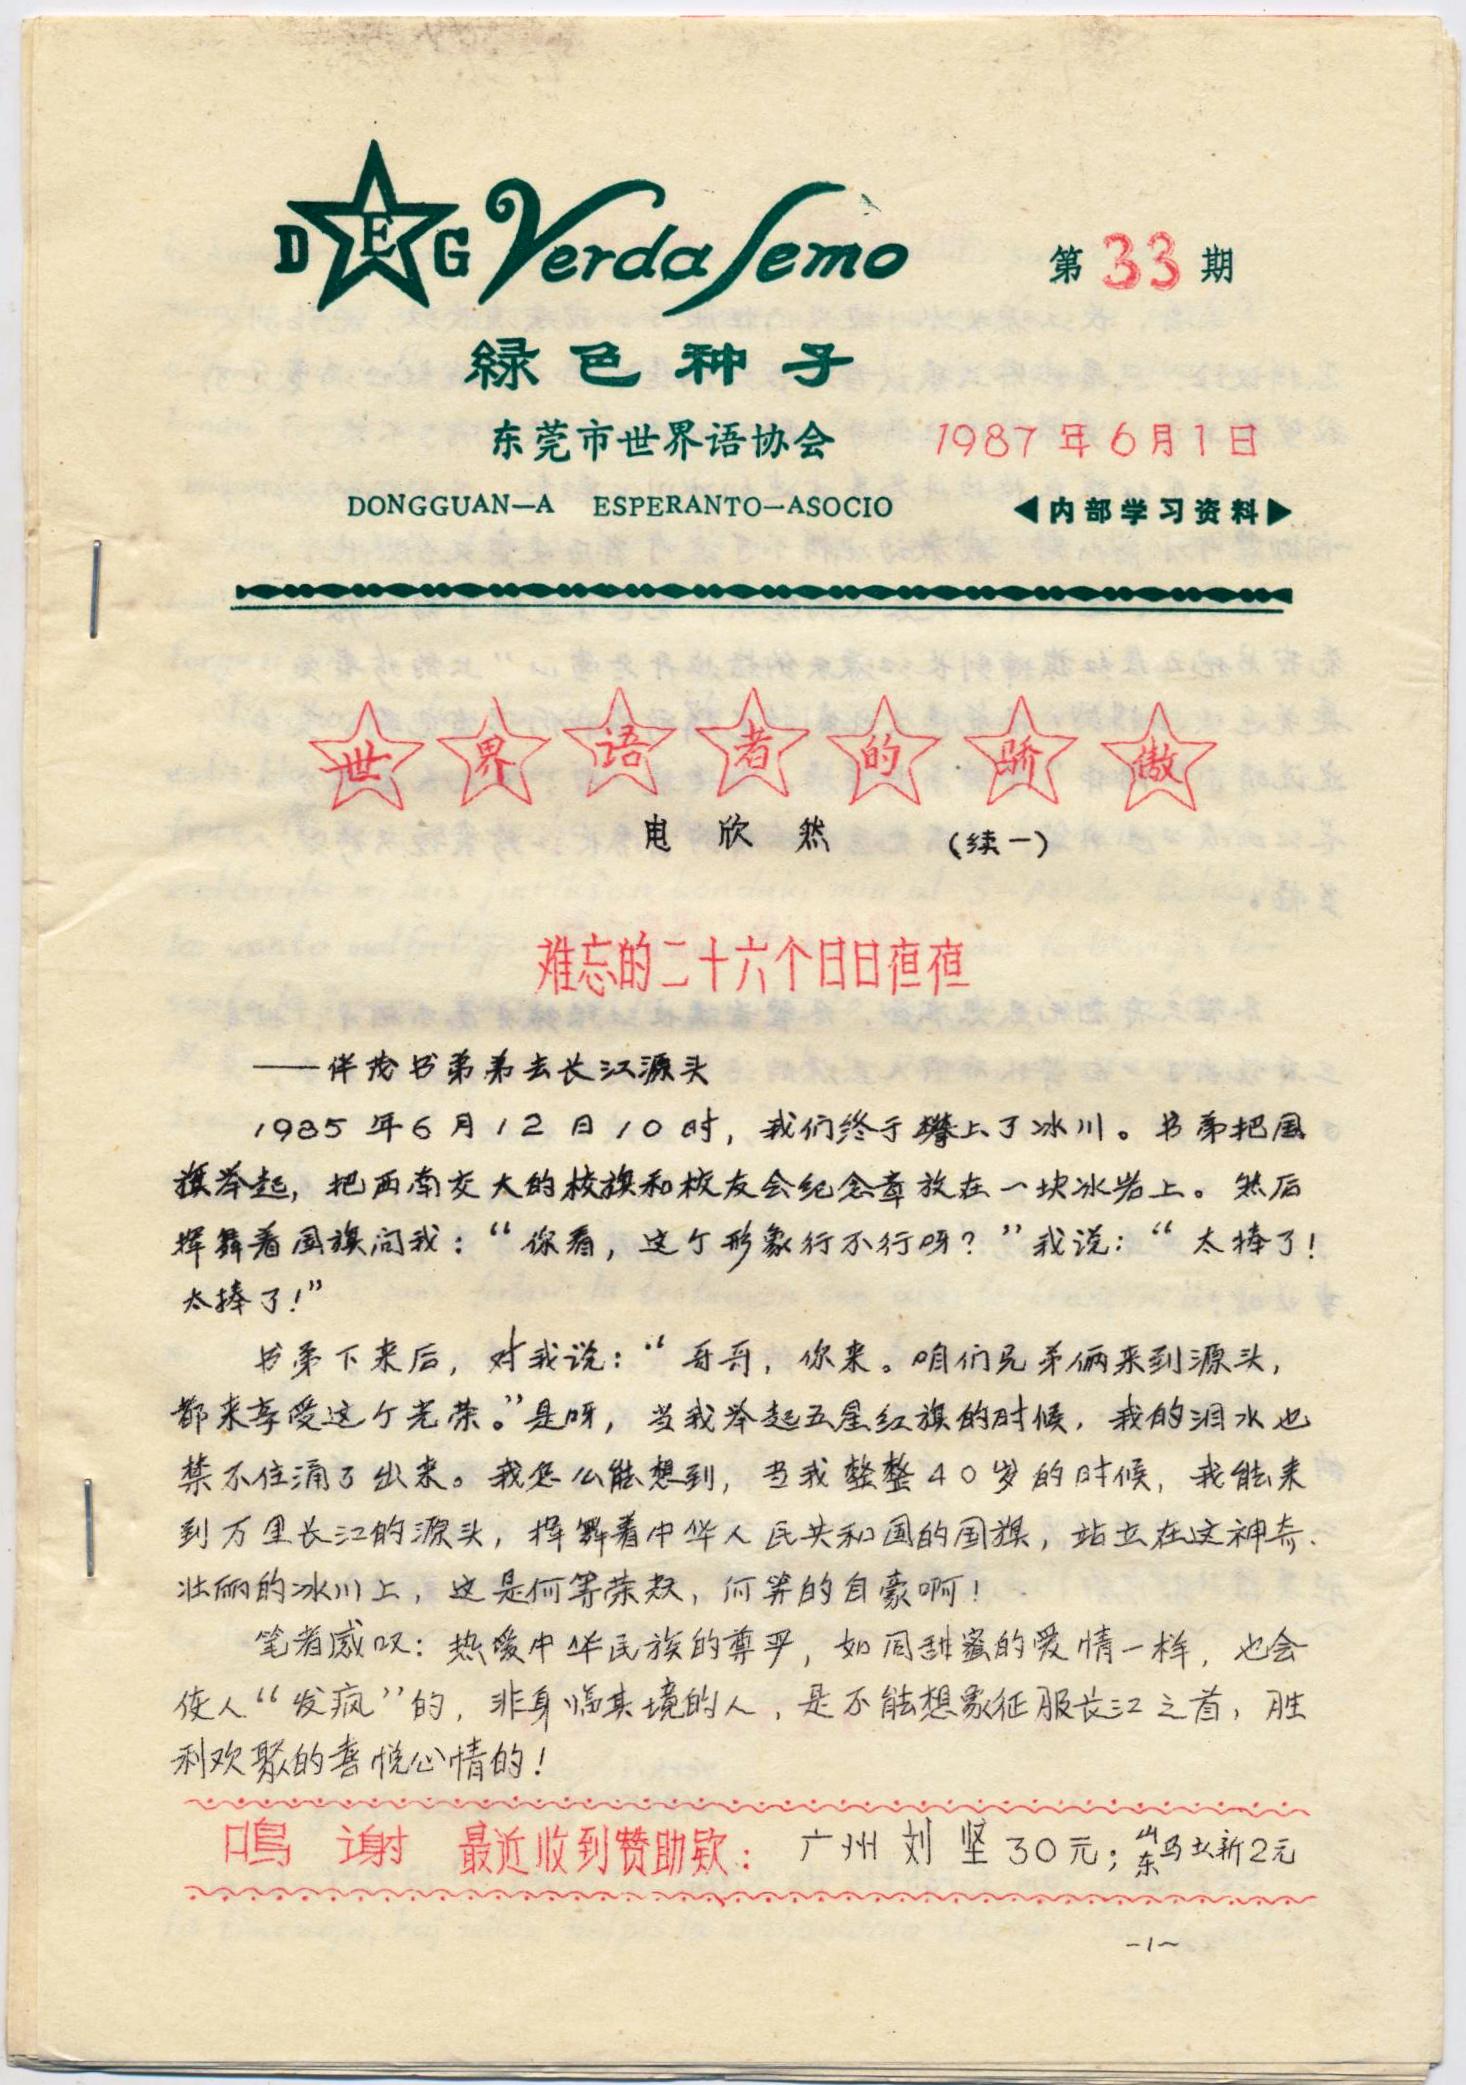 DEG Verda Semo
第33期
緑色种子
东莞市世界语协会 1987年6月1日
DONGGUAN—A ESPERANTO—ASOCIO ◀内部学习资料▶
世界语者的骄傲
电欣然 (续一)
难忘的二十六个日日夜夜
——伴茂书弟弟去长江源头
1985年6月12日10时，我们终于攀上了冰川。书弟把国
旗举起，把西南交大的校旗和校友会纪念章放在一块冰岩上。然后
挥舞着国旗问我：“你看，这个形象行不行呀？”我说：“太棒了！
太捧了！”
书弟下来后，对我说：“哥哥，你来。咱们兄弟俩来到源头，
都来享受这个光荣。”是呀，当我举起五星红旗的时候，我的泪水也
禁不住涌了出来。我怎么能想到，当我整整40岁的时候，我能来
到万里长江的源头，挥舞着中华人民共和国的国旗，站立在这神奇、
壮丽的冰川上，这是何等荣耀，何等的自豪啊！
笔者感叹：热爱中华民族的尊严，如同甜蜜的爱情一样，也会
使人“发疯”的，非身临其境的人，是不能想象征服长江之首，胜
利欢聚的喜悦心情的！
鸣谢 最近收到赞助款：广州刘坚30元；山东马立新2元
-1-